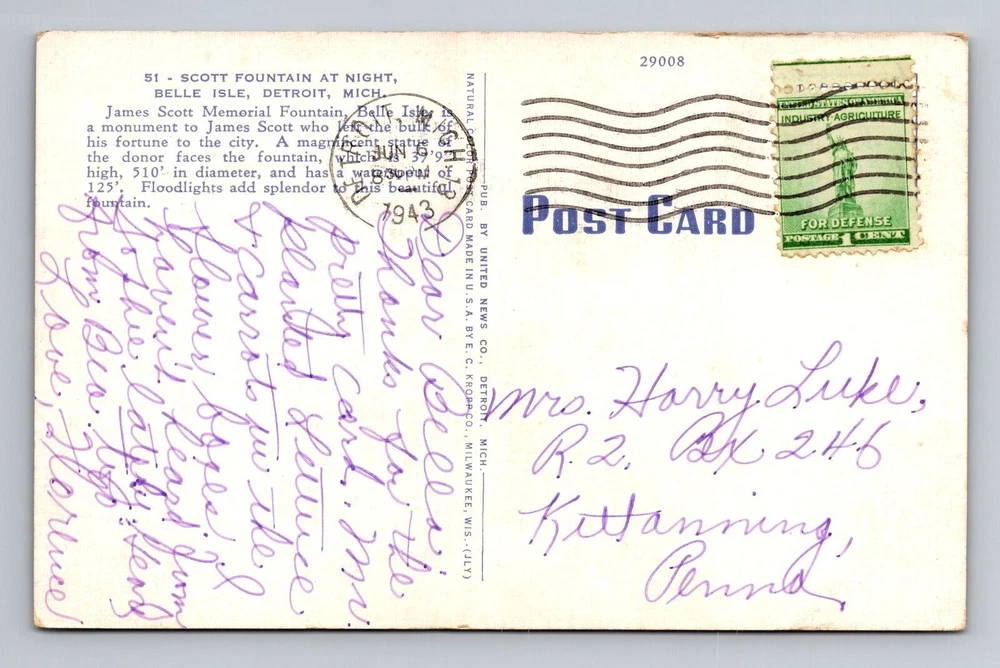 29008
51 - SCOTT FOUNTAIN AT NIGHT,
BELLE ISLE, DETROIT, MICH.
James Scott Memorial Fountain, Belle Isle, is
a monument to James Scott who left the bulk of
his fortune to the city. A magnificent statue of
the donor faces the fountain, which is 39'9"
high, 510' in diameter, and has a waterspout of
125'. Floodlights add splendor to this beautiful
fountain.
DETROIT, MICH. 12
JUN 6
830 PM
1943
NATURAL COLOR POST CARD MADE IN U.S.A. BY E. C. KROPP CO., MILWAUKEE, WIS.-(JLY)
PUB. BY UNITED NEWS CO., DETROIT, MICH.
POST CARD
UNITED STATES OF AMERICA
INDUSTRY-AGRICULTURE
FOR DEFENSE
POSTAGE 1 CENT
Dear Bella:
Thanks for the
pretty card. Mr.
planted lettuce
& carrots in the
flower boxes. I
haven't heard from
lately. Hear
from Bea.
Love, Florence
Mrs. Harry Luke,
R.2. Bx 246
Kittanning,
Penna.